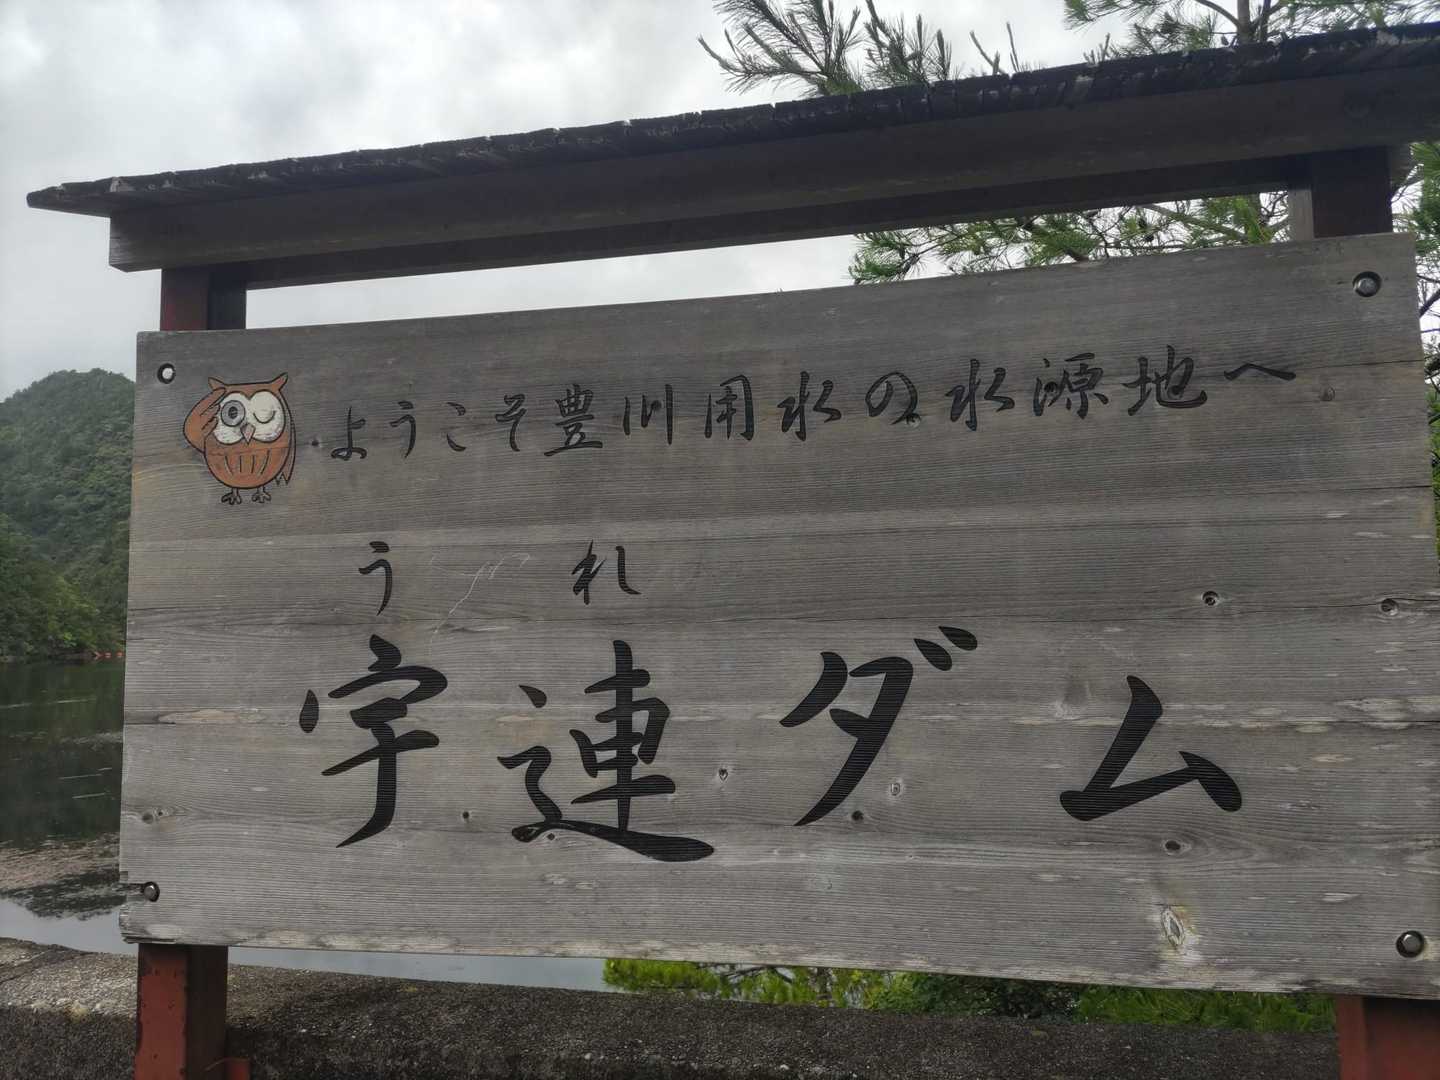 ようこそ豊川用水の水源地へ
うれ
宇連ダム